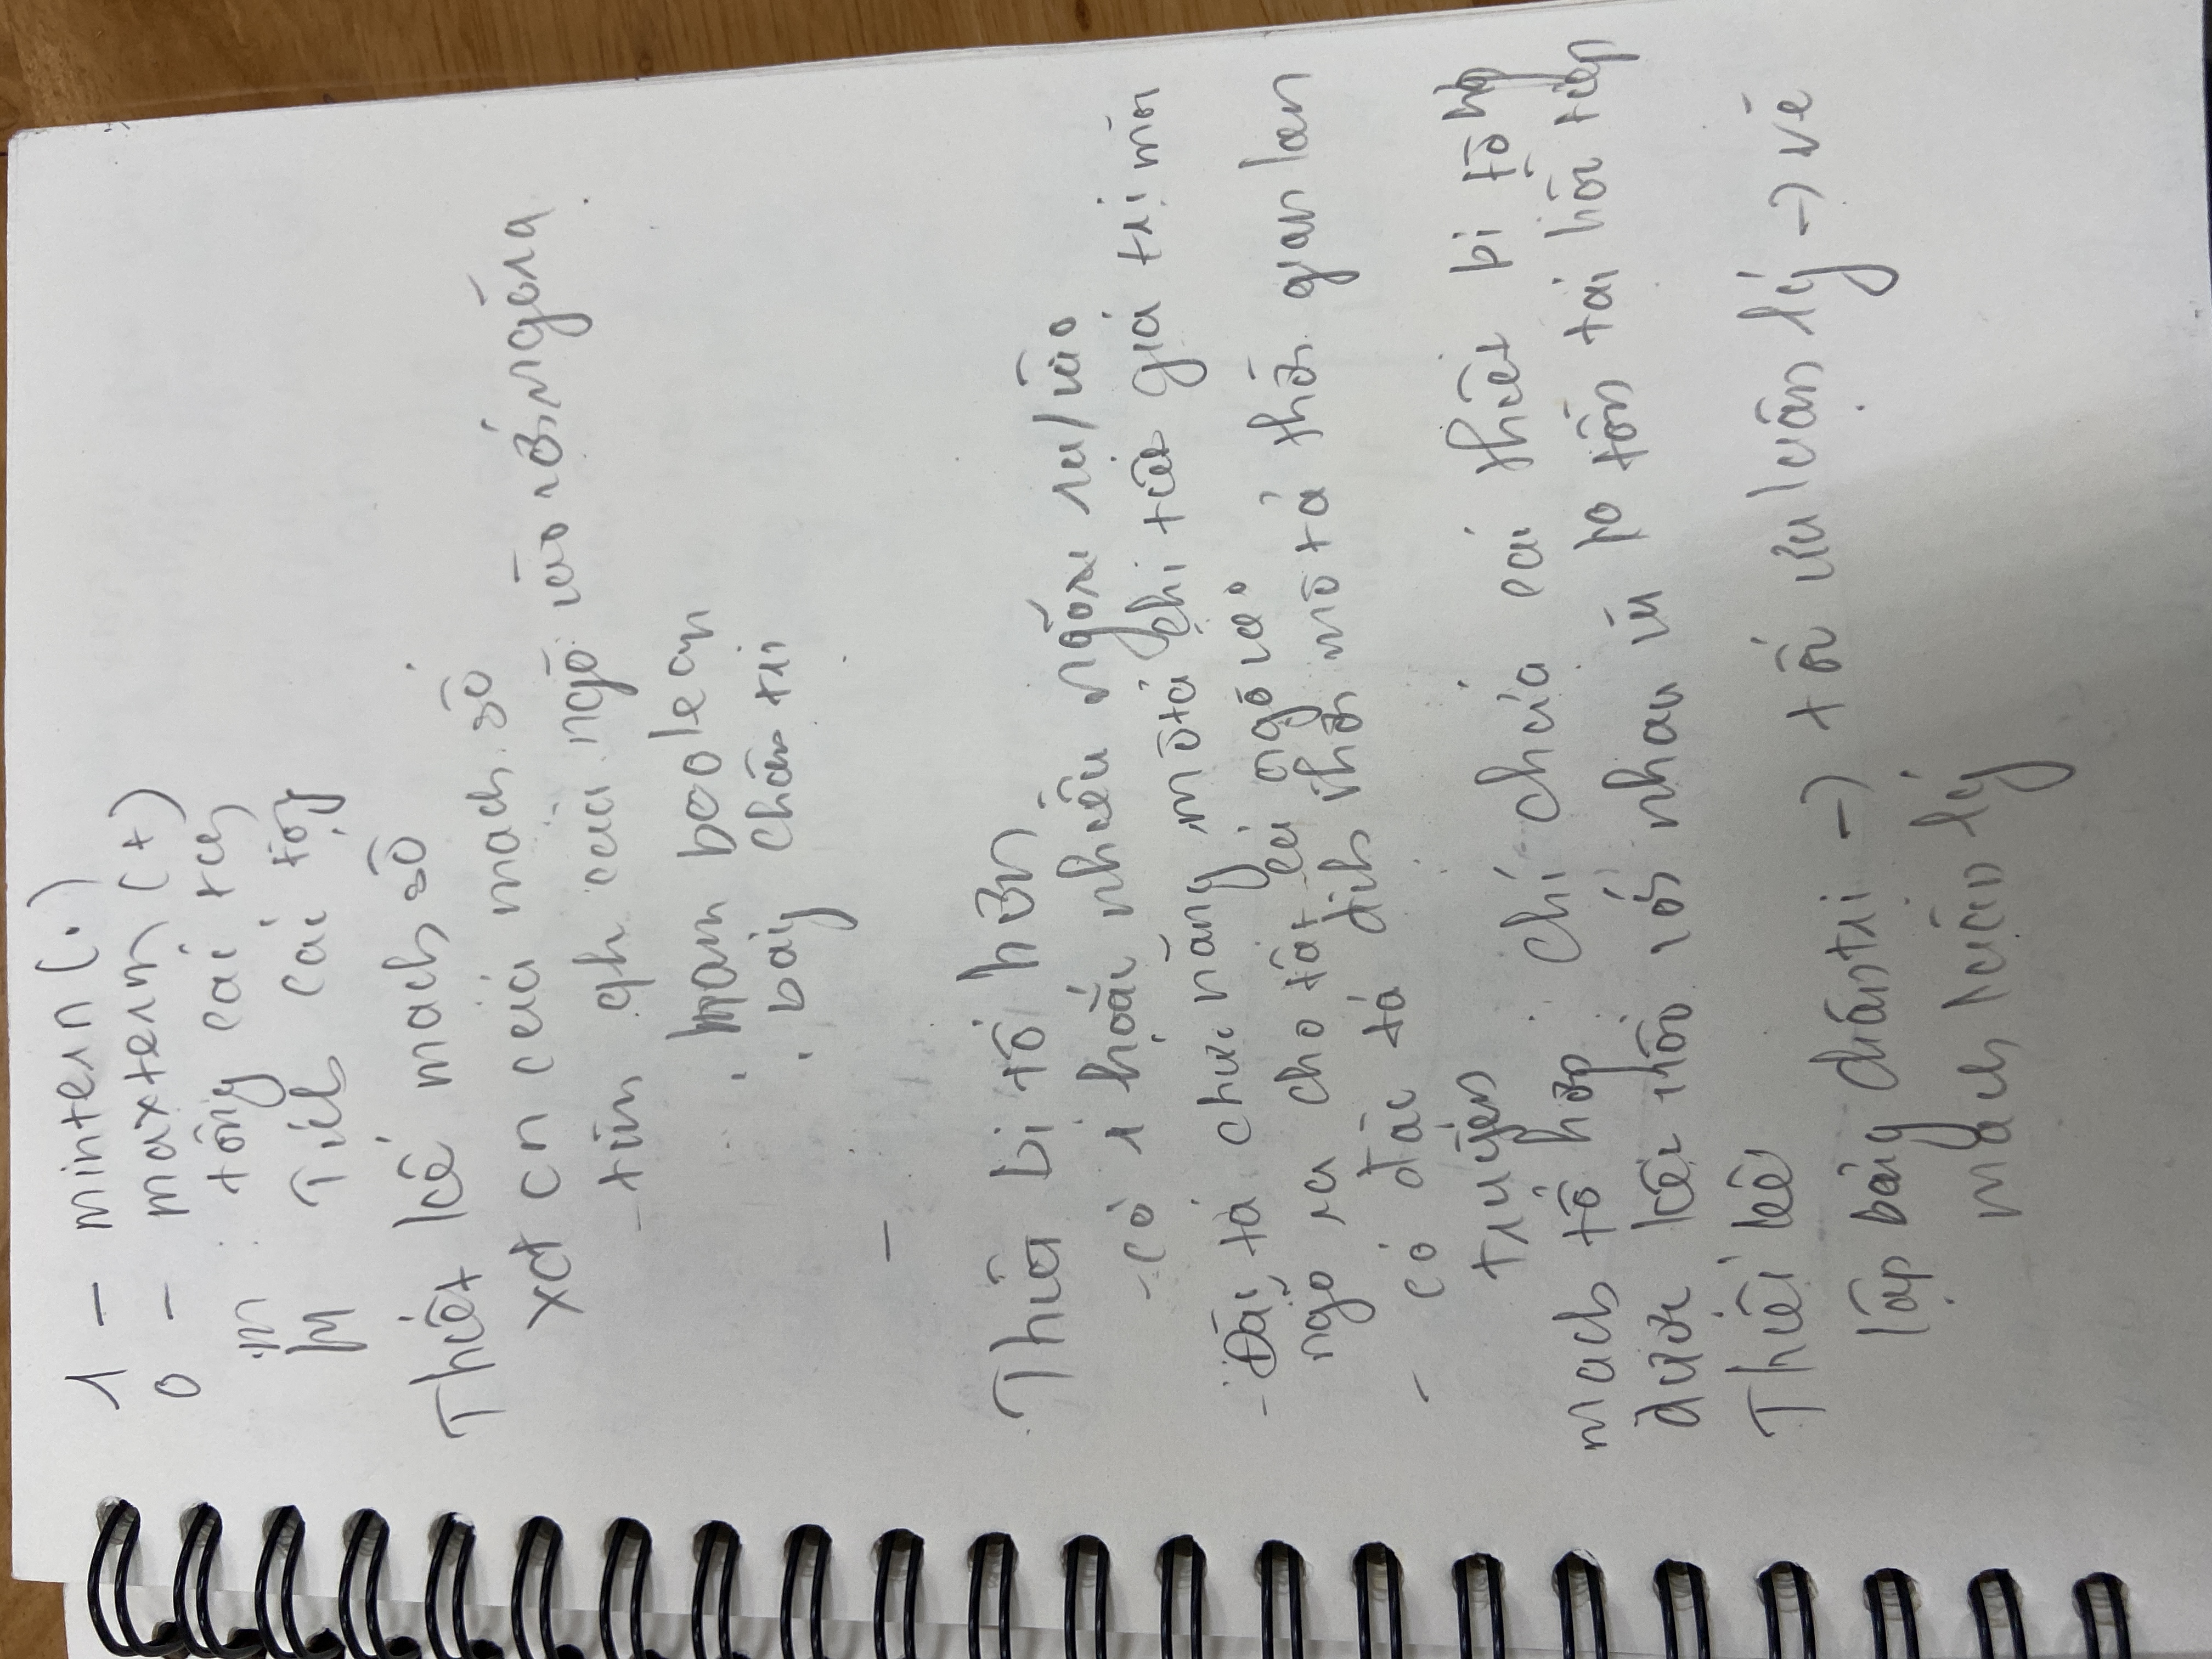 1 - minterm (.)
0 - maxterm (+)
m : tổng các tích
M Tích các tổng
Thiết kế mạch số
xđ cn của mạch số
- tìm qh của ngõ vào với ngõ ra
. hàm boolean
. bảng chân trị
-
Thiết bị tổ hợp
- có 1 hoặc nhiều ngõ ra/vào
- Đặc tả chức năng mô tả chi tiết giá trị mỗi
ngõ ra cho tất cả ngõ vào
- có đặc tả định thời mô tả thời gian lan
truyền
mạch tổ hợp : chỉ chứa các thiết bị tổ hợp
được kết nối với nhau và ko tồn tại hồi tiếp
Thiết kế
lập bảng chân trị -> tối ưu luận lý -> vẽ
mạch luận lý